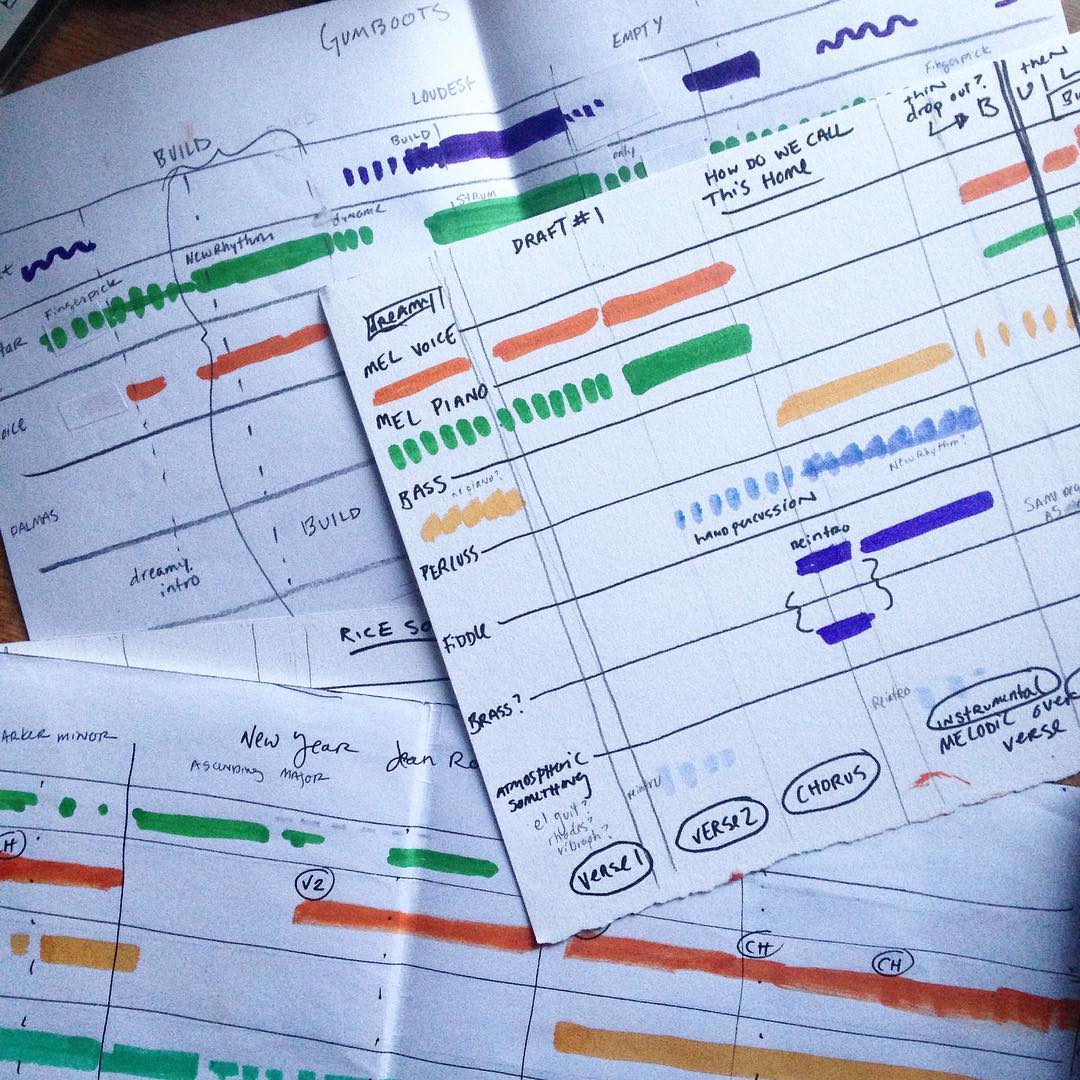 GUMBOOTS
EMPTY
LOUDEST
BUILD
BUILD
only
Strum
dynamic
New Rhythm
Fingerpick
Fingerpick
DALMAS
dreamy
intro
BUILD
RICE
thin
drop out?
B
then
HOW DO WE CALL
This Home
DRAFT #1
DREAMY
MEL VOICE
MEL PIANO
BASS
no piano?
PERCUSS
hand percussion
New Rhythm?
FIDDLE
Reintro
BRASS?
SAME
AS
ATMOSPHERIC
SOMETHING
el guit?
rhodes?
vibraph?
Reintro
Reintro
VERSE 1
VERSE 2
CHORUS
INSTRUMENTAL
MELODIC OVER
VERSE
MINOR
New Year
Ascending Major
Jean
V2
CH
CH